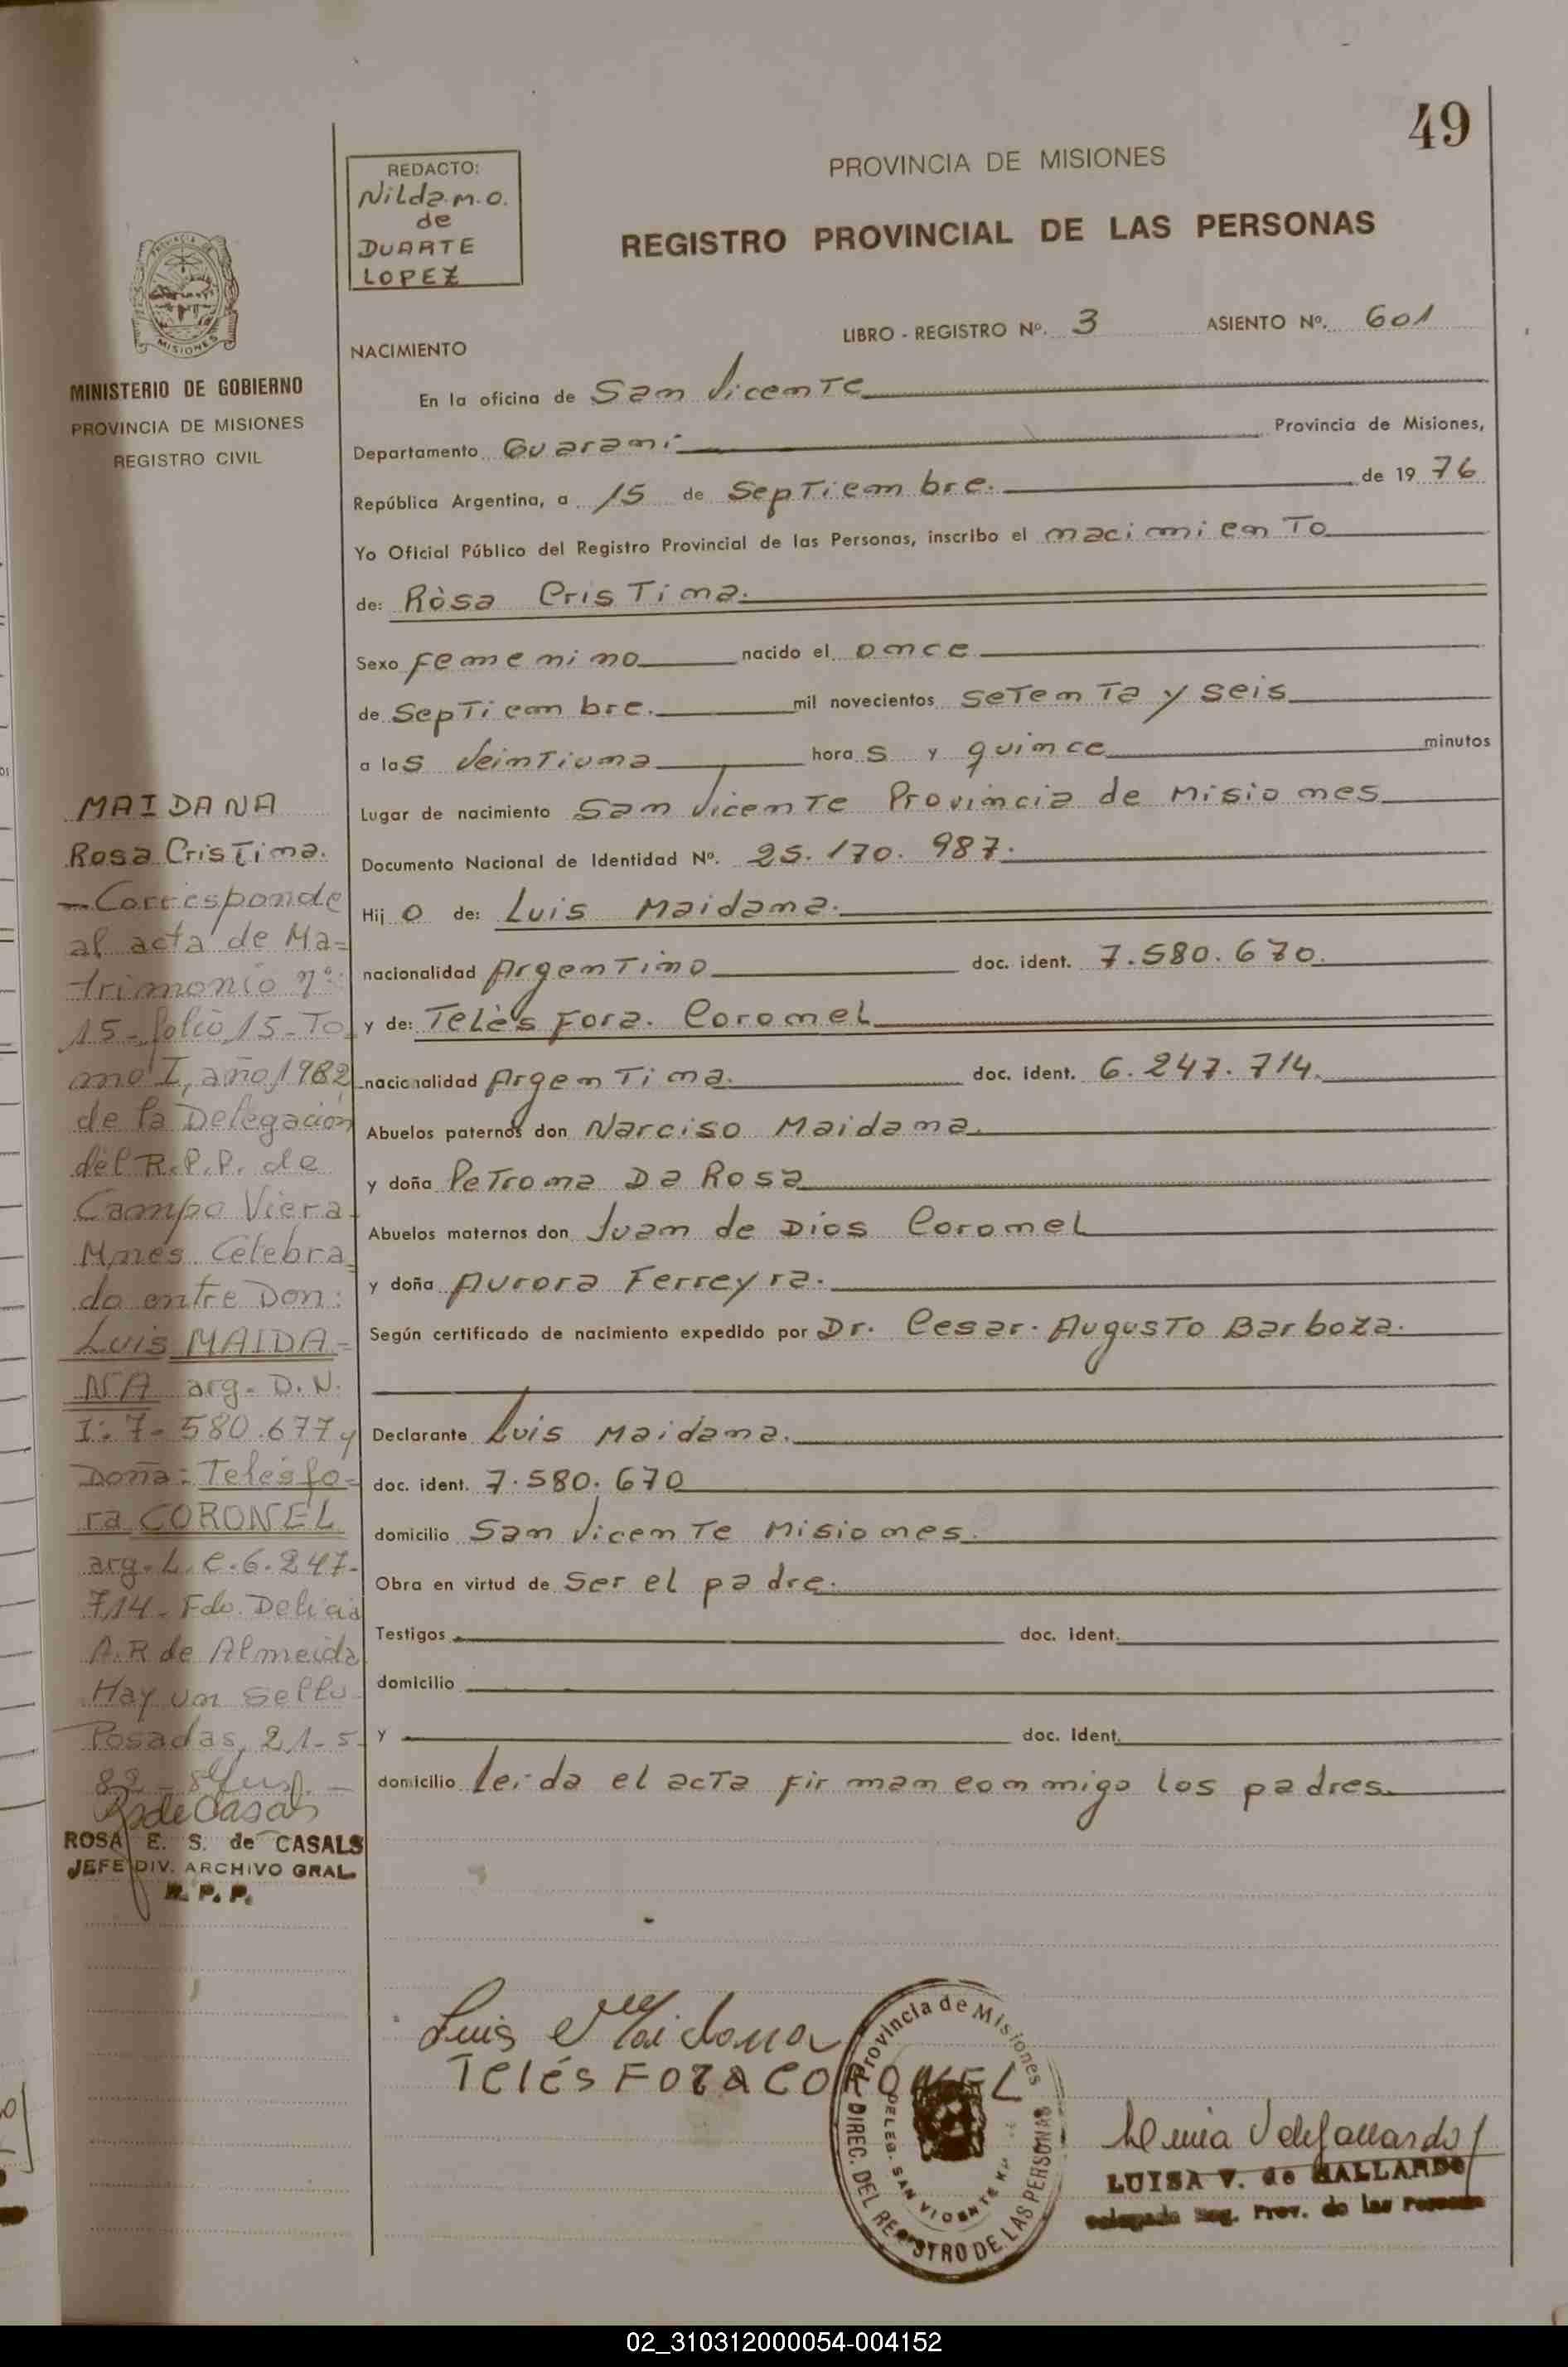 49
REDACTO:
Nilda.M.O.
de
DUARTE
LOPEZ
PROVINCIA DE MISIONES
REGISTRO PROVINCIAL DE LAS PERSONAS
MISIONES
MINISTERIO DE GOBIERNO
PROVINCIA DE MISIONES
REGISTRO CIVIL
LIBRO - REGISTRO Nº. 3 ASIENTO Nº. 601
NACIMIENTO
En la oficina de San Vicente
Departamento Guaraní Provincia de Misiones,
República Argentina, a 15 de Septiembre. de 19 76
Yo Oficial Público del Registro Provincial de las Personas, inscribo el nacimiento
de: Ròsa Cristina.
Sexo Femenino nacido el once
de Septiembre. mil novecientos setenta y seis
a las Veintiuna horas y quince minutos
Lugar de nacimiento San Vicente Provincia de Misiones
Documento Nacional de Identidad Nº. 25.170.987.
Hijo de: Luis Maidana.
nacionalidad Argentino doc. ident. 7.580.670.
y de: Telèsfora. Coronel
nacionalidad Argentina. doc. ident. 6.247.714.
Abuelos paternos don Narciso Maidana.
y doña Petrona Da Rosa
Abuelos maternos don Juan de Dios Coronel
y doña Aurora Ferreyra.
Según certificado de nacimiento expedido por Dr. Cesar. Augusto Barboza.
Declarante Luis Maidana.
doc. ident. 7.580.670
domicilio San Vicente Misiones.
Obra en virtud de ser el padre.
Testigos doc. ident.
domicilio
y doc. ident.
domicilio Leída el acta firman conmigo los padres.
MAIDANA
Rosa Cristina.
- Corresponde
al acta de Ma=
trimonio nº:
15-folio 15-To
mo I, año 1982
de la Delegación
del R.P.P. de
Campo Viera-
Mnes. Celebra=
do entre Don:
Luis MAIDA=
NA arg. D.N.
I: 7-580.677 y
Doña: Telésfo=
ra CORONEL
arg. L.C. 6.247-
714. Fdo. Delicia
A.R de Almeida
Hay un sello
Posadas, 21-5-
82-
RdeCasals
ROSA E. S. de CASALS
JEFE DIV. ARCHIVO GRAL.
R. P. P.
Luis Maidana
TelésFORA CORONEL
Provincia de Misiones
DIREC. DEL REGISTRO DE LAS PERSONAS
DELEG. SAN VICENTE
LUISA V. de GALLARDO
Delegada Reg. Prov. de las Personas
02_310312000054-004152